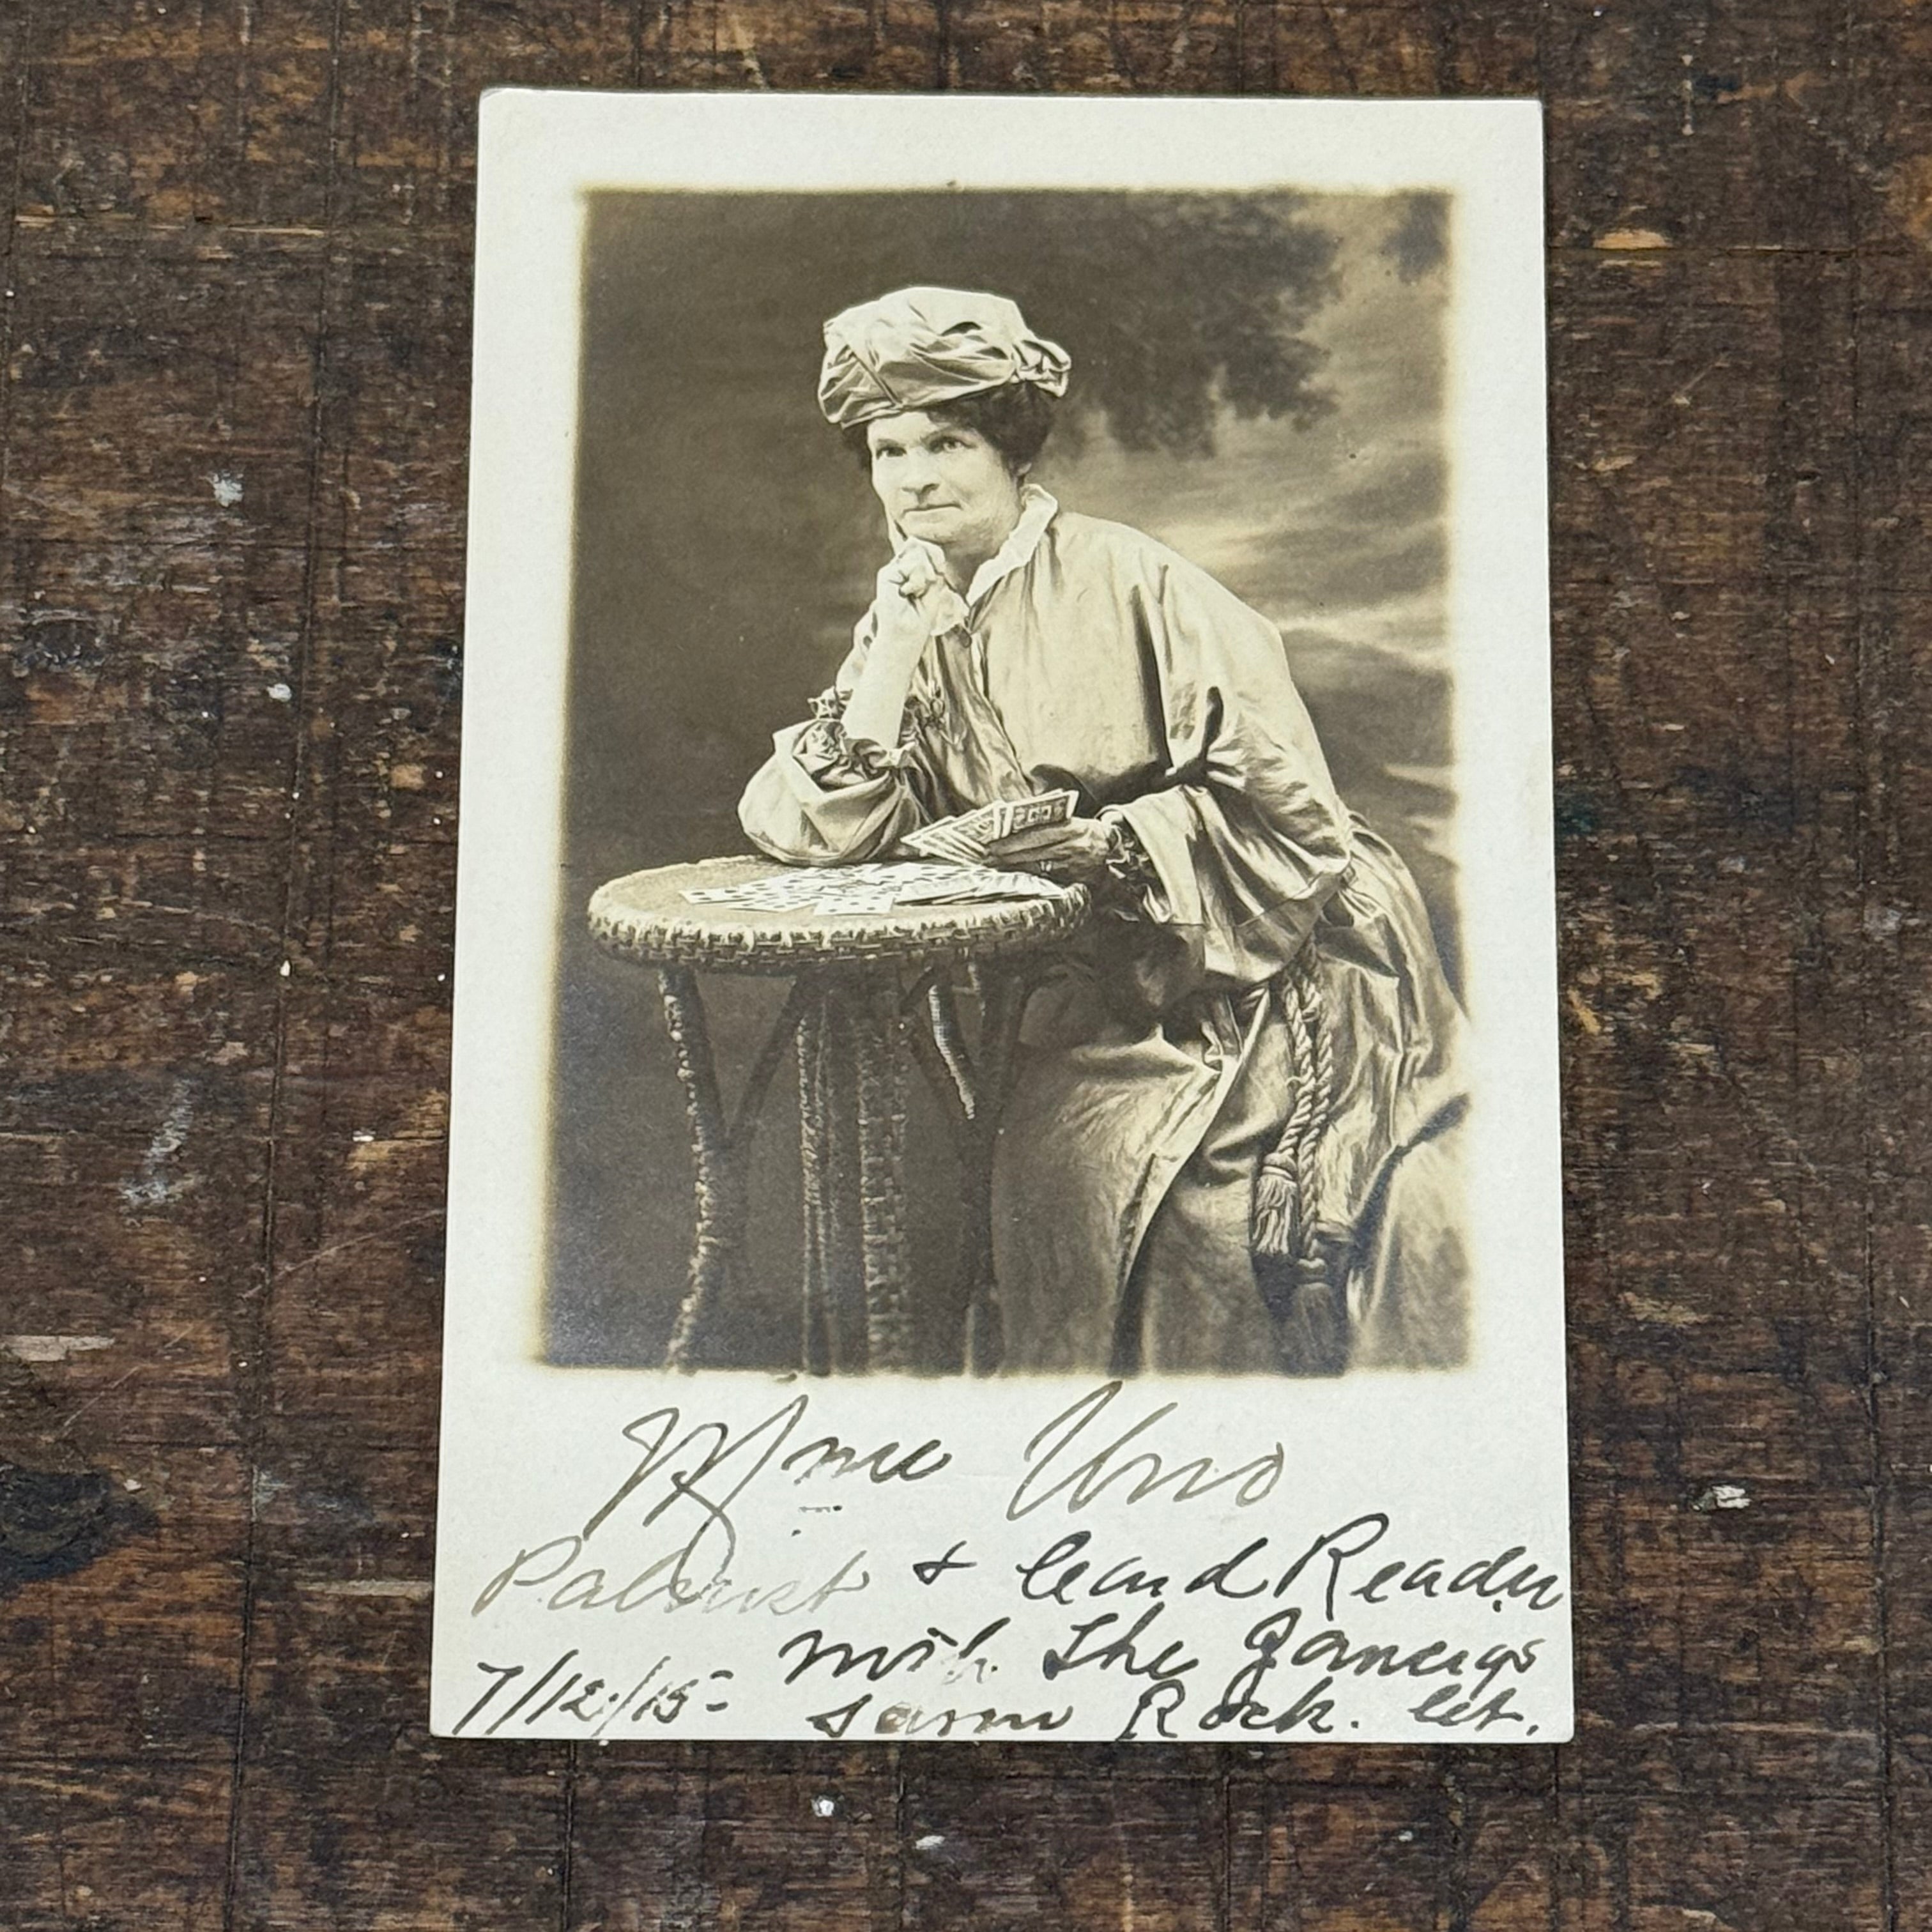 Mme Uno
Palmist & Card Reader
with The
7/12/15 Rock. Ct.